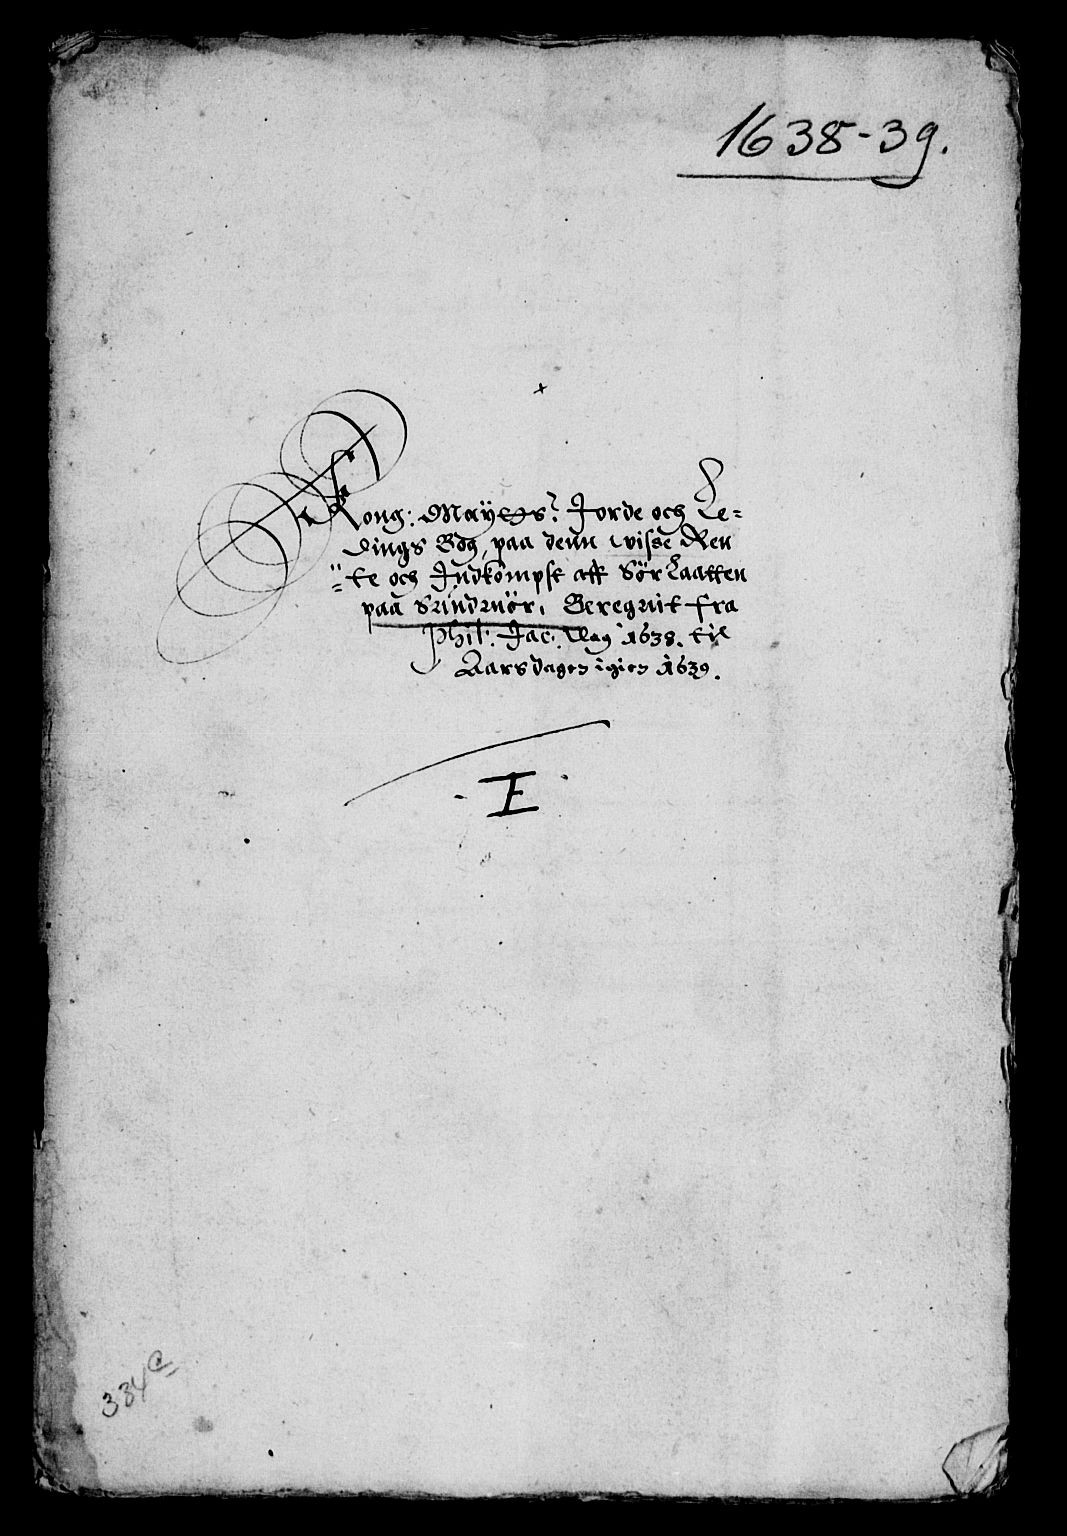 1638-39.
Kong: Maÿtts: Jorde och Le=
dings Bog, paa denn wisse Ren
"te och Jndkompst aff Sør Laatten
paa Sundmør, Beregnit fra
Phil: Jac: Dag 1638. til
Aarsdagen igien 1639.
- E -
334 a